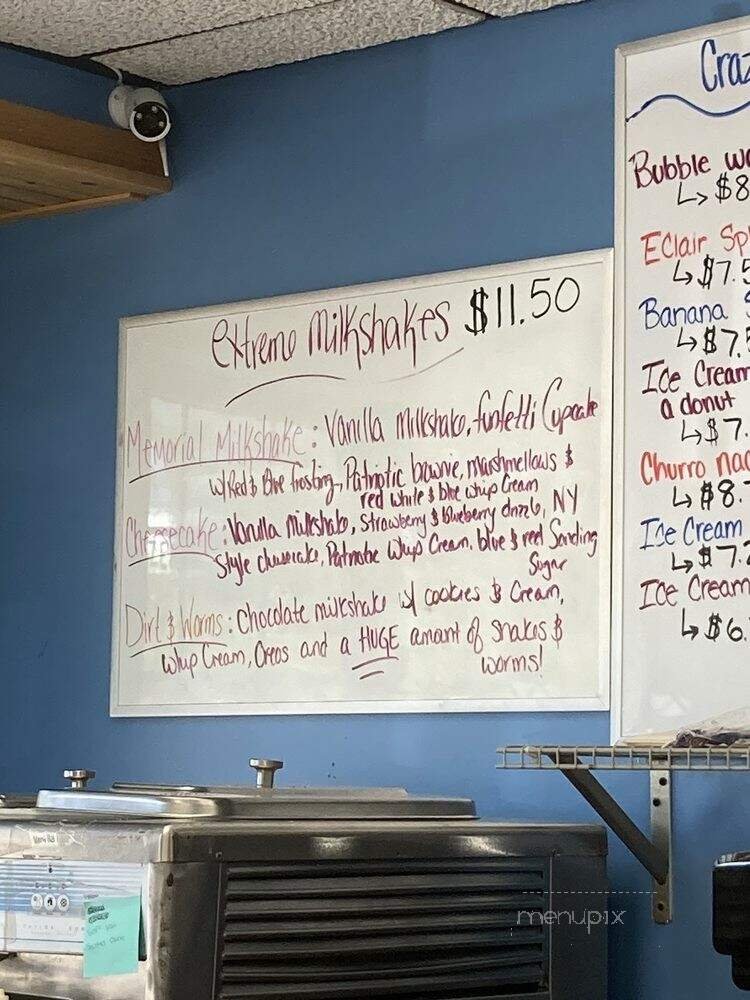 extreme Milkshakes $11.50
Memorial Milkshake: Vanilla Milkshake, funfetti Cupcake
w/ Red & Blue frosting, Patriotic brownie, marshmellows &
red white & blue whip cream
Cheesecake: Vanilla Milkshake, Strawberry & blueberry drizzle, NY
Style cheesecake, Patriotic Whip Cream, blue & red Sanding
Sugar
Dirt & Worms: Chocolate milkshake w/ cookies & Cream,
whip Cream, Oreos and a HUGE amount of snakes &
worms!
Craz
Bubble wa
↳ $8
EClair Spl
↳ $7.5
Banana S
↳ $7.5
Ice Cream
a donut
↳ $7.
Churro nac
↳ $8.
Ice Cream
↳ $7.2
Ice Cream
↳ $6.
menupix